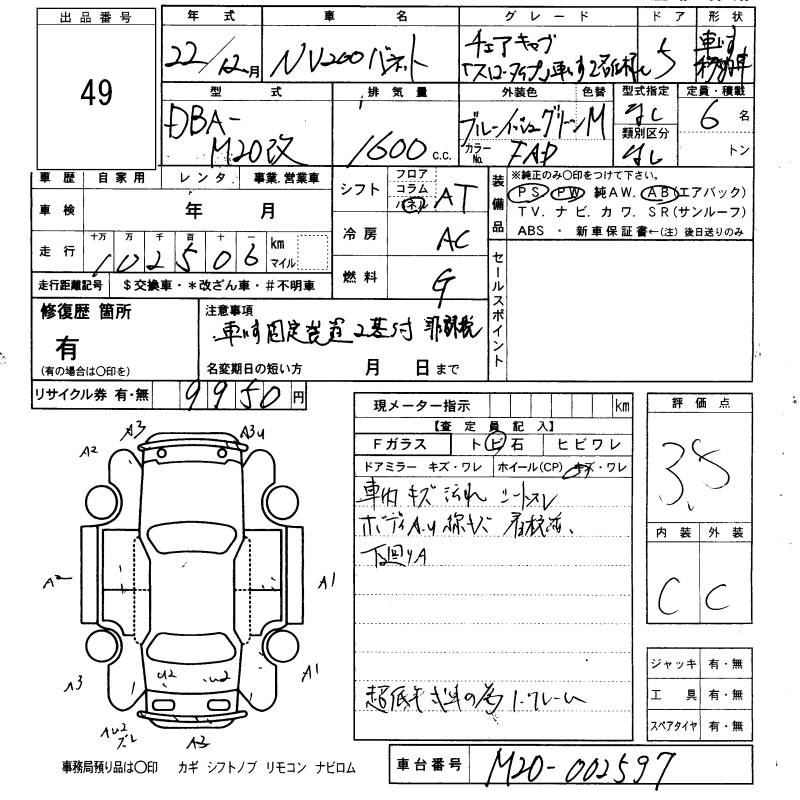 出品番号
49
年式 車名 グレード ドア 形状
22/12月 NV200バネット チェアキャブ 5 車いす移動車
「スロープタイプ」車いす2名仕様
型式 排気量 外装色 色替 型式指定 定員・積載
DBA-M20改 1600 c.c. ブルーイッシュグリーンM なし 6名
カラーNo. FAP 類別区分 なし トン
車歴 自家用 レンタ 事業.営業車
車検 年 月
走行 十万 万 千 百 十 一
102506 km マイル
走行距離記号 $交換車・*改ざん車・#不明車
シフト フロア コラム パネル AT
冷房 AC
燃料 G
装備品
※純正のみ〇印をつけて下さい。
PS PW 純AW. AB(エアバック)
TV. ナビ. カワ. SR(サンルーフ)
ABS ・ 新車保証書←(注) 後日送りのみ
セールスポイント
修復歴 箇所
有
(有の場合は〇印を)
注意事項
車いす固定装置2基付 非課税
名変期日の短い方 月 日まで
リサイクル券 有・無 9950円
現メーター指示 km
【査定員記入】
Fガラス トビ石 ヒビワレ
ドアミラー キズ・ワレ ホイール(CP) キズ・ワレ
車内キズ 汚れ シートスレ
ボディA.U
下回りA
評価点
3.5
内装 外装
C C
ジャッキ 有・無
工具 有・無
スペアタイヤ 有・無
A3 A3
A2
A2 A1
A3 A1
U2 U2
A3
事務局預り品は〇印 カギ シフトノブ リモコン ナビロム
車台番号 M20-002597